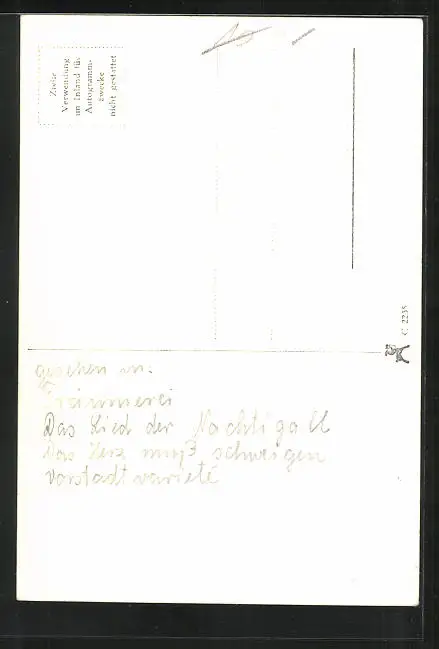 Zivile
Verwendung
im Inland für
Autogramm-
zwecke
nicht gestattet
C 2235
gesehen in:
Träumerei
Das Lied der Nachtigall
Das Herz muß schweigen
Vorstadtvarieté